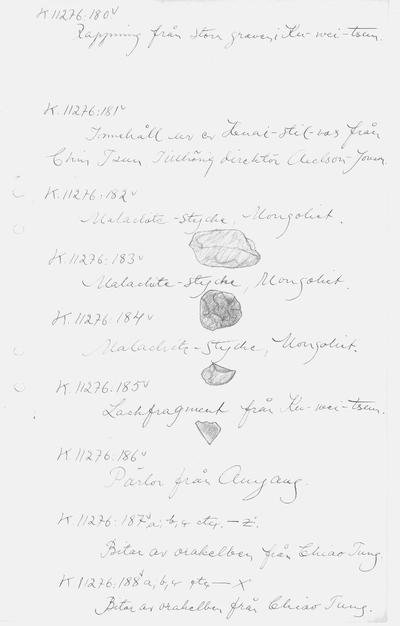 K.11276:180ᵛ
Rappning från stora graven i Ku-wei-tsun.
K.11276:181ᵛ
Innehåll ur en Huai-stil-vas från
Chin Tsun Tillhörig direktör
K.11276:182ᵛ
Malachite-stycke, Mongoliet.
K.11276:183ᵛ
Malachite-stycke, Mongoliet.
K.11276:184ᵛ
Malachite-stycke, Mongoliet.
K.11276:185ᵛ
Lackfragment från Ku-wei-tsun.
K.11276:186ᵛ
Pärlor från Anyang.
K.11276:187 a, b, 4 etc. – z.
Bitar av orakelben från Chiao Tung.
K.11276:188 a, b, 4 etc – x
Bitar av orakelben från Chiao Tung.